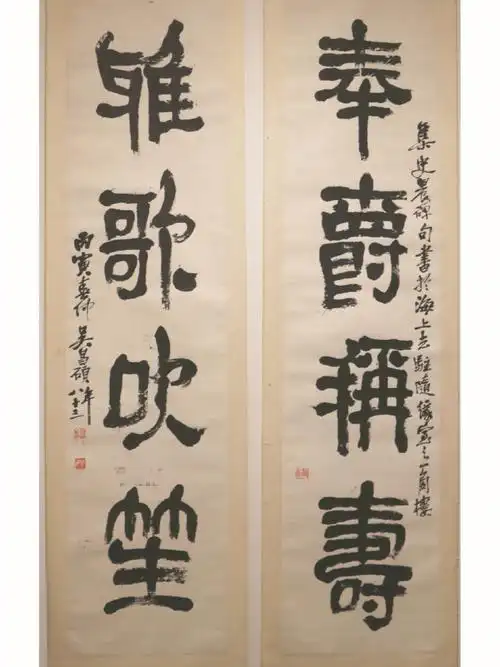 奉爵稱壽
集史晨碑句書於海上去駐隨緣室之一角樓
雅歌吹笙
丙寅春仲吳昌碩年八十三